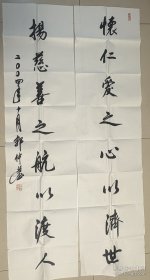 懷仁愛之心以濟世
揚慈善之航以渡人
二〇〇四年十月郭仲